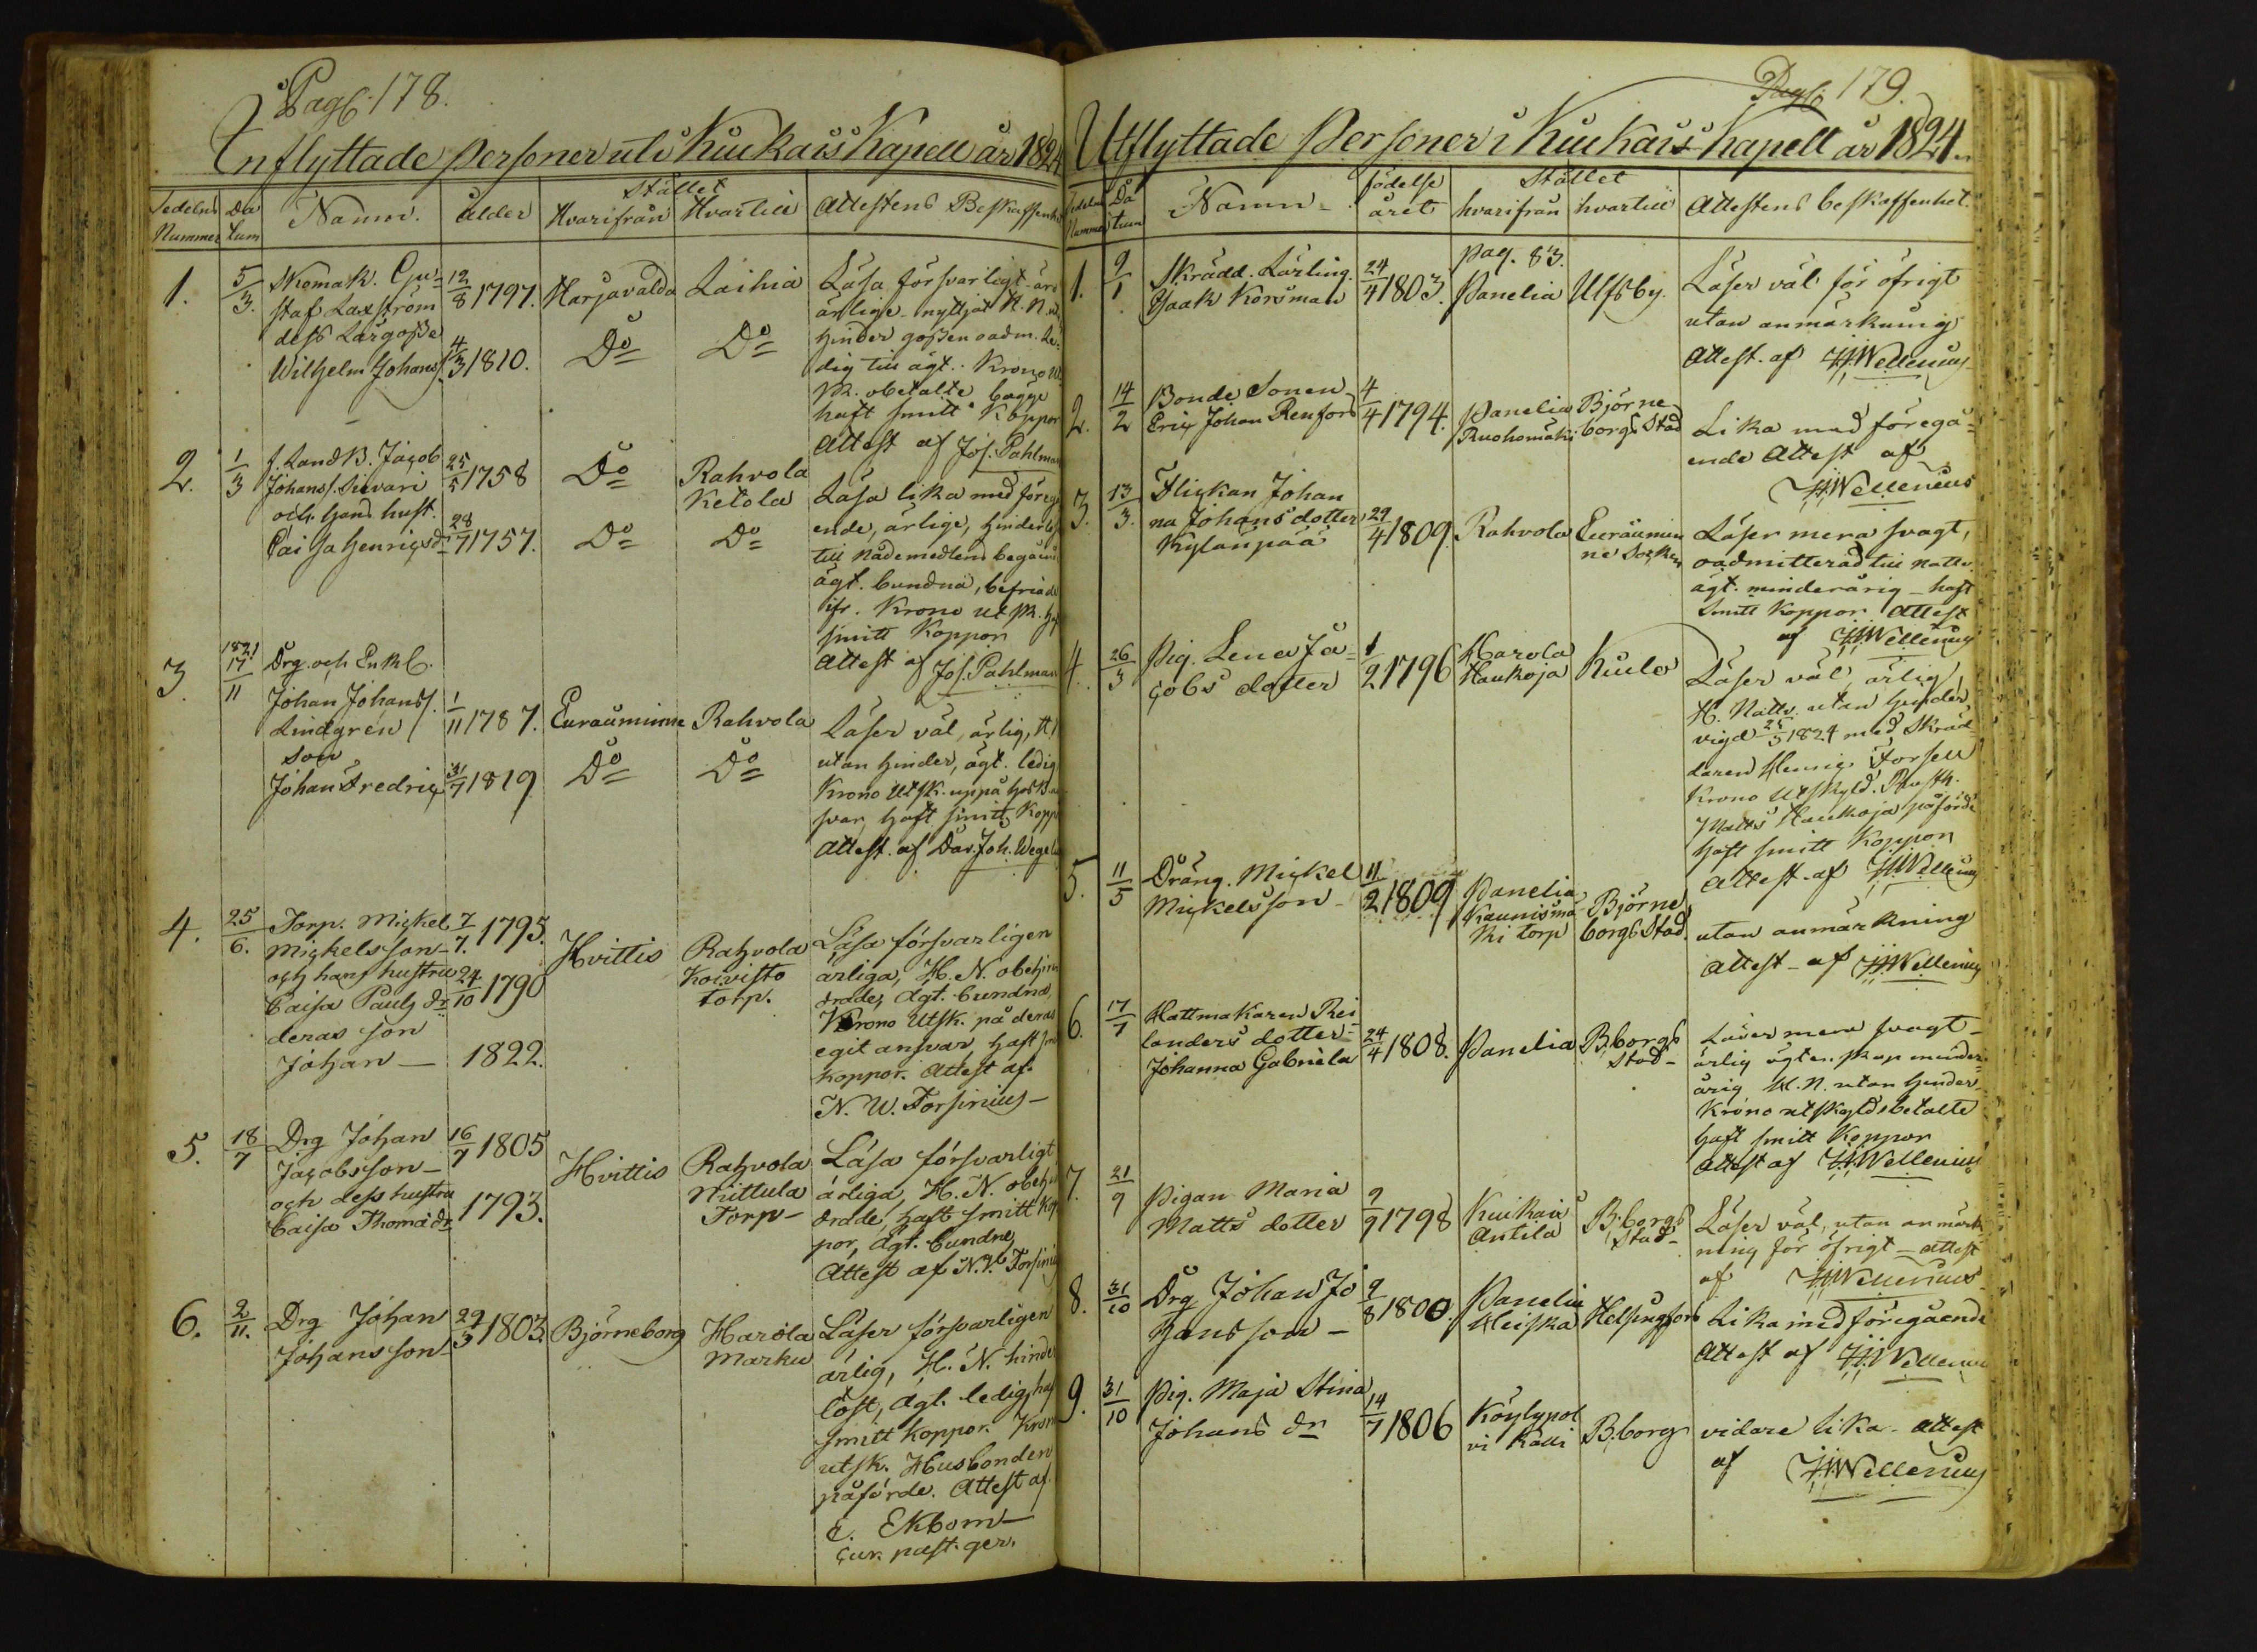 Pag. 178.
Inflyttade Personer uti Kiukais Kapell år 1824
Sedelns Nummer
Datum
Namn.
ålder
Stället
Hvarifrån
Hvartill
Attestens Beskaffenhet
1.
5/3.
Skomak. Gu=
staf Laxström
dess Lärgosse
Wilhelm Johans s.
12/8 1797.
4/3 1810.
Harjavalda
Do
Laihia
Do
Läsa försvarligt äro
ärlige nyttjat N. N. u
hinder gossen oadm. Le=
dig till ägt. Krono U
sk. obetalte bägge
haft smitt Koppor
Attest af Jos. Pahlman
2.
1/3
f. Land B. Jacob
Johans s. Sievari
och hans hust.
Caisa Henrics dr
25/5 1758
28/7 1757.
Do
Do
Rahvola
Ketola
Do
Läsa lika med föreg
ende, ärlige, hinderlös
till Nådemedlens begåen
ägt. bundna, befriade
ifr. Krono utsk. haf
smitt Koppor
Attest af Jos. Pahlman
3
1821
17/11
Drg. och Enkl.
Johan Johans s.
Lindgren
Son
Johan Fredric
1/11 1787.
31/7 1819
Euraåminne
Do
Rahvola
Do
Läser väl, ärlig, H.
utan hinder, ägt. ledig
Krono Utsk. uppå hosB
svar, haft smitt Kopp
Attest. af Dav. Joh. Wegel
4.
25/6.
Torp. Mickel
Mickelsson
och hans hustru
Caisa Pauls dr
deras son
Johan —
7/7. 1795.
24/10 1790
1822.
Hvittis
Rahvola
Koivisto
torp.
Läsa försvarligen
ärliga, H. N. obehin
drade, ägt. bundna,
Krono Utsk. på deras
egit ansvar, haft sm
koppor. Attest af
N. W. Forsinius —
5.
18/7
Drg Johan
Jacobsson —
och dess hustru
Caisa Thomædr
16/7 1805
1793.
Hvittis
Rahvola
Niittula
Torp —
Läsa försvarligt
ärliga, H. N. obehin
drade, haft smitt kop
por, ägt. bundne,
Attest af N. W. Forsinius
6.
2/11.
Drg Johan
Johansson
29/3 1803.
Björneborg
Harola
Marku
Läser försvarligen
ärlig, H. N. hinder
löst, ägt. ledig, haf
smitt koppor. Kron
utsk. Husbonden
påförde. Attest af
C. Ekbom —
Cur. past. ger.
Pag. 179.
Utflyttade Personer i Kiukais Kapell år 1824.
Sedelns Nummer
Datum
Namn —
födelse
året
Stället
hvarifrån
hvartill
Attestens beskaffenhet.
1.
9/1
Skrädd. Lärling.
Isaak Korsman
24/4 1803.
pag. 83.
Panelia
Ulfsby.
Läser väl för öfrigt
utan anmärkning
Attest. af H. Wellenius
2.
14/2
Bonde Sonen
Eric Johan Renfors
4/4 1794.
Panelia
Ruohomäki
Björne
borgs Stad
Lika med föregå=
ende Attest af
H. Wellenius
3.
13/3.
Flickan Johan
na Johans dotter
Kylänpää
29/4 1809.
Rahvola
Euraåmin
ne Socken
Läser mera svagt,
oadmitterad till nattv.
ägt. minderårig — haft
Smitt Koppor Attest
af H. Wellenius
4.
26/3
Pig. Lena Ja=
cobs dotter
1/2 1796
Harola
Haukoja
Kiulo
Läser väl, ärlig,
H. Nattv. utan hinder,
vigd 25/3 1824 med Skräd
daren Henric Forsell
Krono Utskyld. Rusth.
Matts Haukoja påförde
haft smitt Koppor
Attest af H. Wellenius
5.
11/5
Dräng. Mickel
Mickelsson —
11/2 1809
Panelia
Kaunismä
ki torp
Björne
borgs Stad.
utan anmärkning
attest — af H. Wellenius
6.
17/7
Hattmakaren Rei
landers dotter —
Johanna Gabriela
24/4 1808.
Panelia
B:borgs
Stad —
Läser mera svagt —
ärlig ägtenskap minder=
årig H. N. utan hinder —
Krono utskyld betalte
haft smitt Koppor
Attest af H. Wellenius
7.
21/9
Pigan Maria
Matts dotter
9/9 1798
Kiukais
Antila
B:borgs
Stad —
Läser väl, utan anmärk
ning för öfrigt — attest
af H. Wellenius
8.
31/10
Drg Johan Jo
hansson —
9/8 1800.
Panelia
Heiska
Helsingfors
Lika med föregående
Attest af H. Wellenius
9.
31/10
Pig. Maja Stina
Johans dr
14/7 1806
Köylypol
vi Källi
B:borg
vidare lika — attest
af H. Wellenius